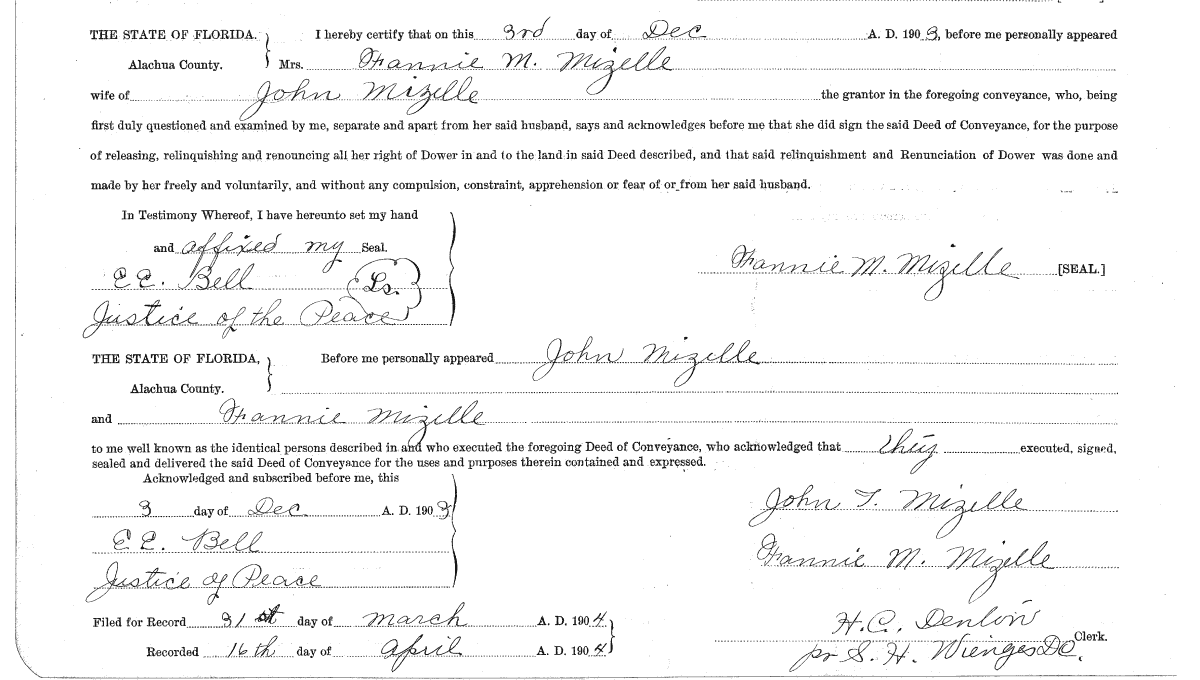 THE STATE OF FLORIDA. I hereby certify that on this 3rd day of Dec A. D. 1903, before me personally appeared
Alachua County. Mrs. Fannie M. Mizelle
wife of John Mizelle the grantor in the foregoing conveyance, who, being
first duly questioned and examined by me, separate and apart from her said husband, says and acknowledges before me that she did sign the said Deed of Conveyance, for the purpose
of releasing, relinquishing and renouncing all her right of Dower in and to the land in said Deed described, and that said relinquishment and Renunciation of Dower was done and
made by her freely and voluntarily, and without any compulsion, constraint, apprehension or fear of or from her said husband.
In Testimony Whereof, I have hereunto set my hand
and affixed my Seal.
E E. Bell Ls.
Fannie M. Mizelle [SEAL.]
Justice of the Peace
THE STATE OF FLORIDA, Before me personally appeared John Mizelle
Alachua County.
and Fannie Mizelle
to me well known as the identical persons described in and who executed the foregoing Deed of Conveyance, who acknowledged that they executed, signed,
sealed and delivered the said Deed of Conveyance for the uses and purposes therein contained and expressed.
Acknowledged and subscribed before me, this
3 day of Dec A. D. 1903
John T. Mizelle
E E. Bell
Fannie M. Mizelle
Justice of Peace
Filed for Record 31 st day of March A. D. 1904
H. C. Denton Clerk.
Recorded 16th day of April A. D. 1904
pr S. H. Wienges DC.